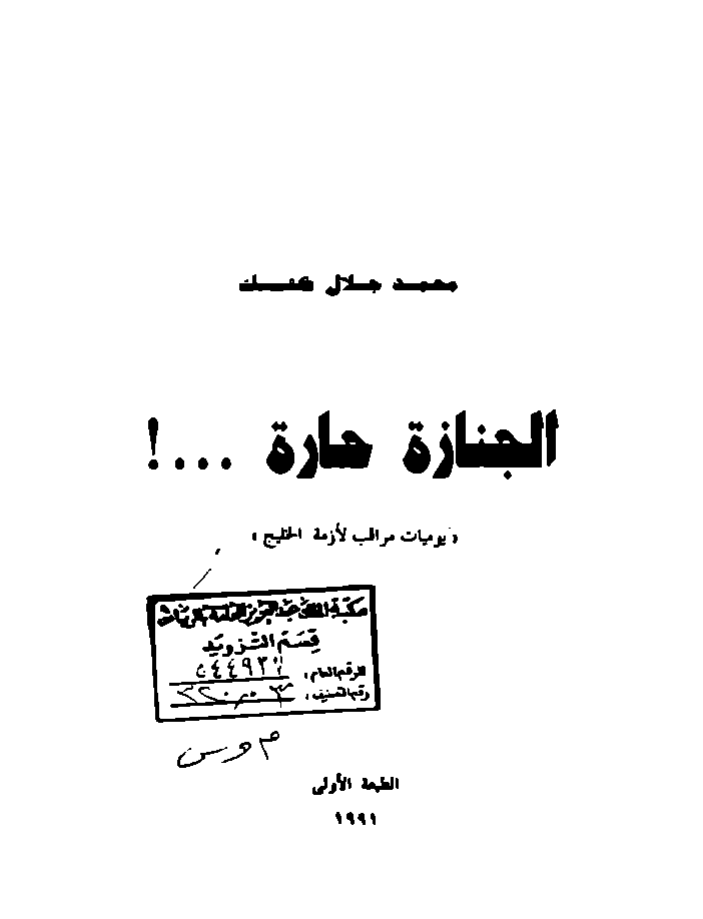 محمد جلال كشك
الجنازة حارة ...!
« يوميات مراقب لأزمة الخليج »
مكتبة الملك عبد العزيز العامة بالرياض
قسم التزويد
الرقم العام :
رقم التصنيف :
الطبعة الأولى
١٩٩١